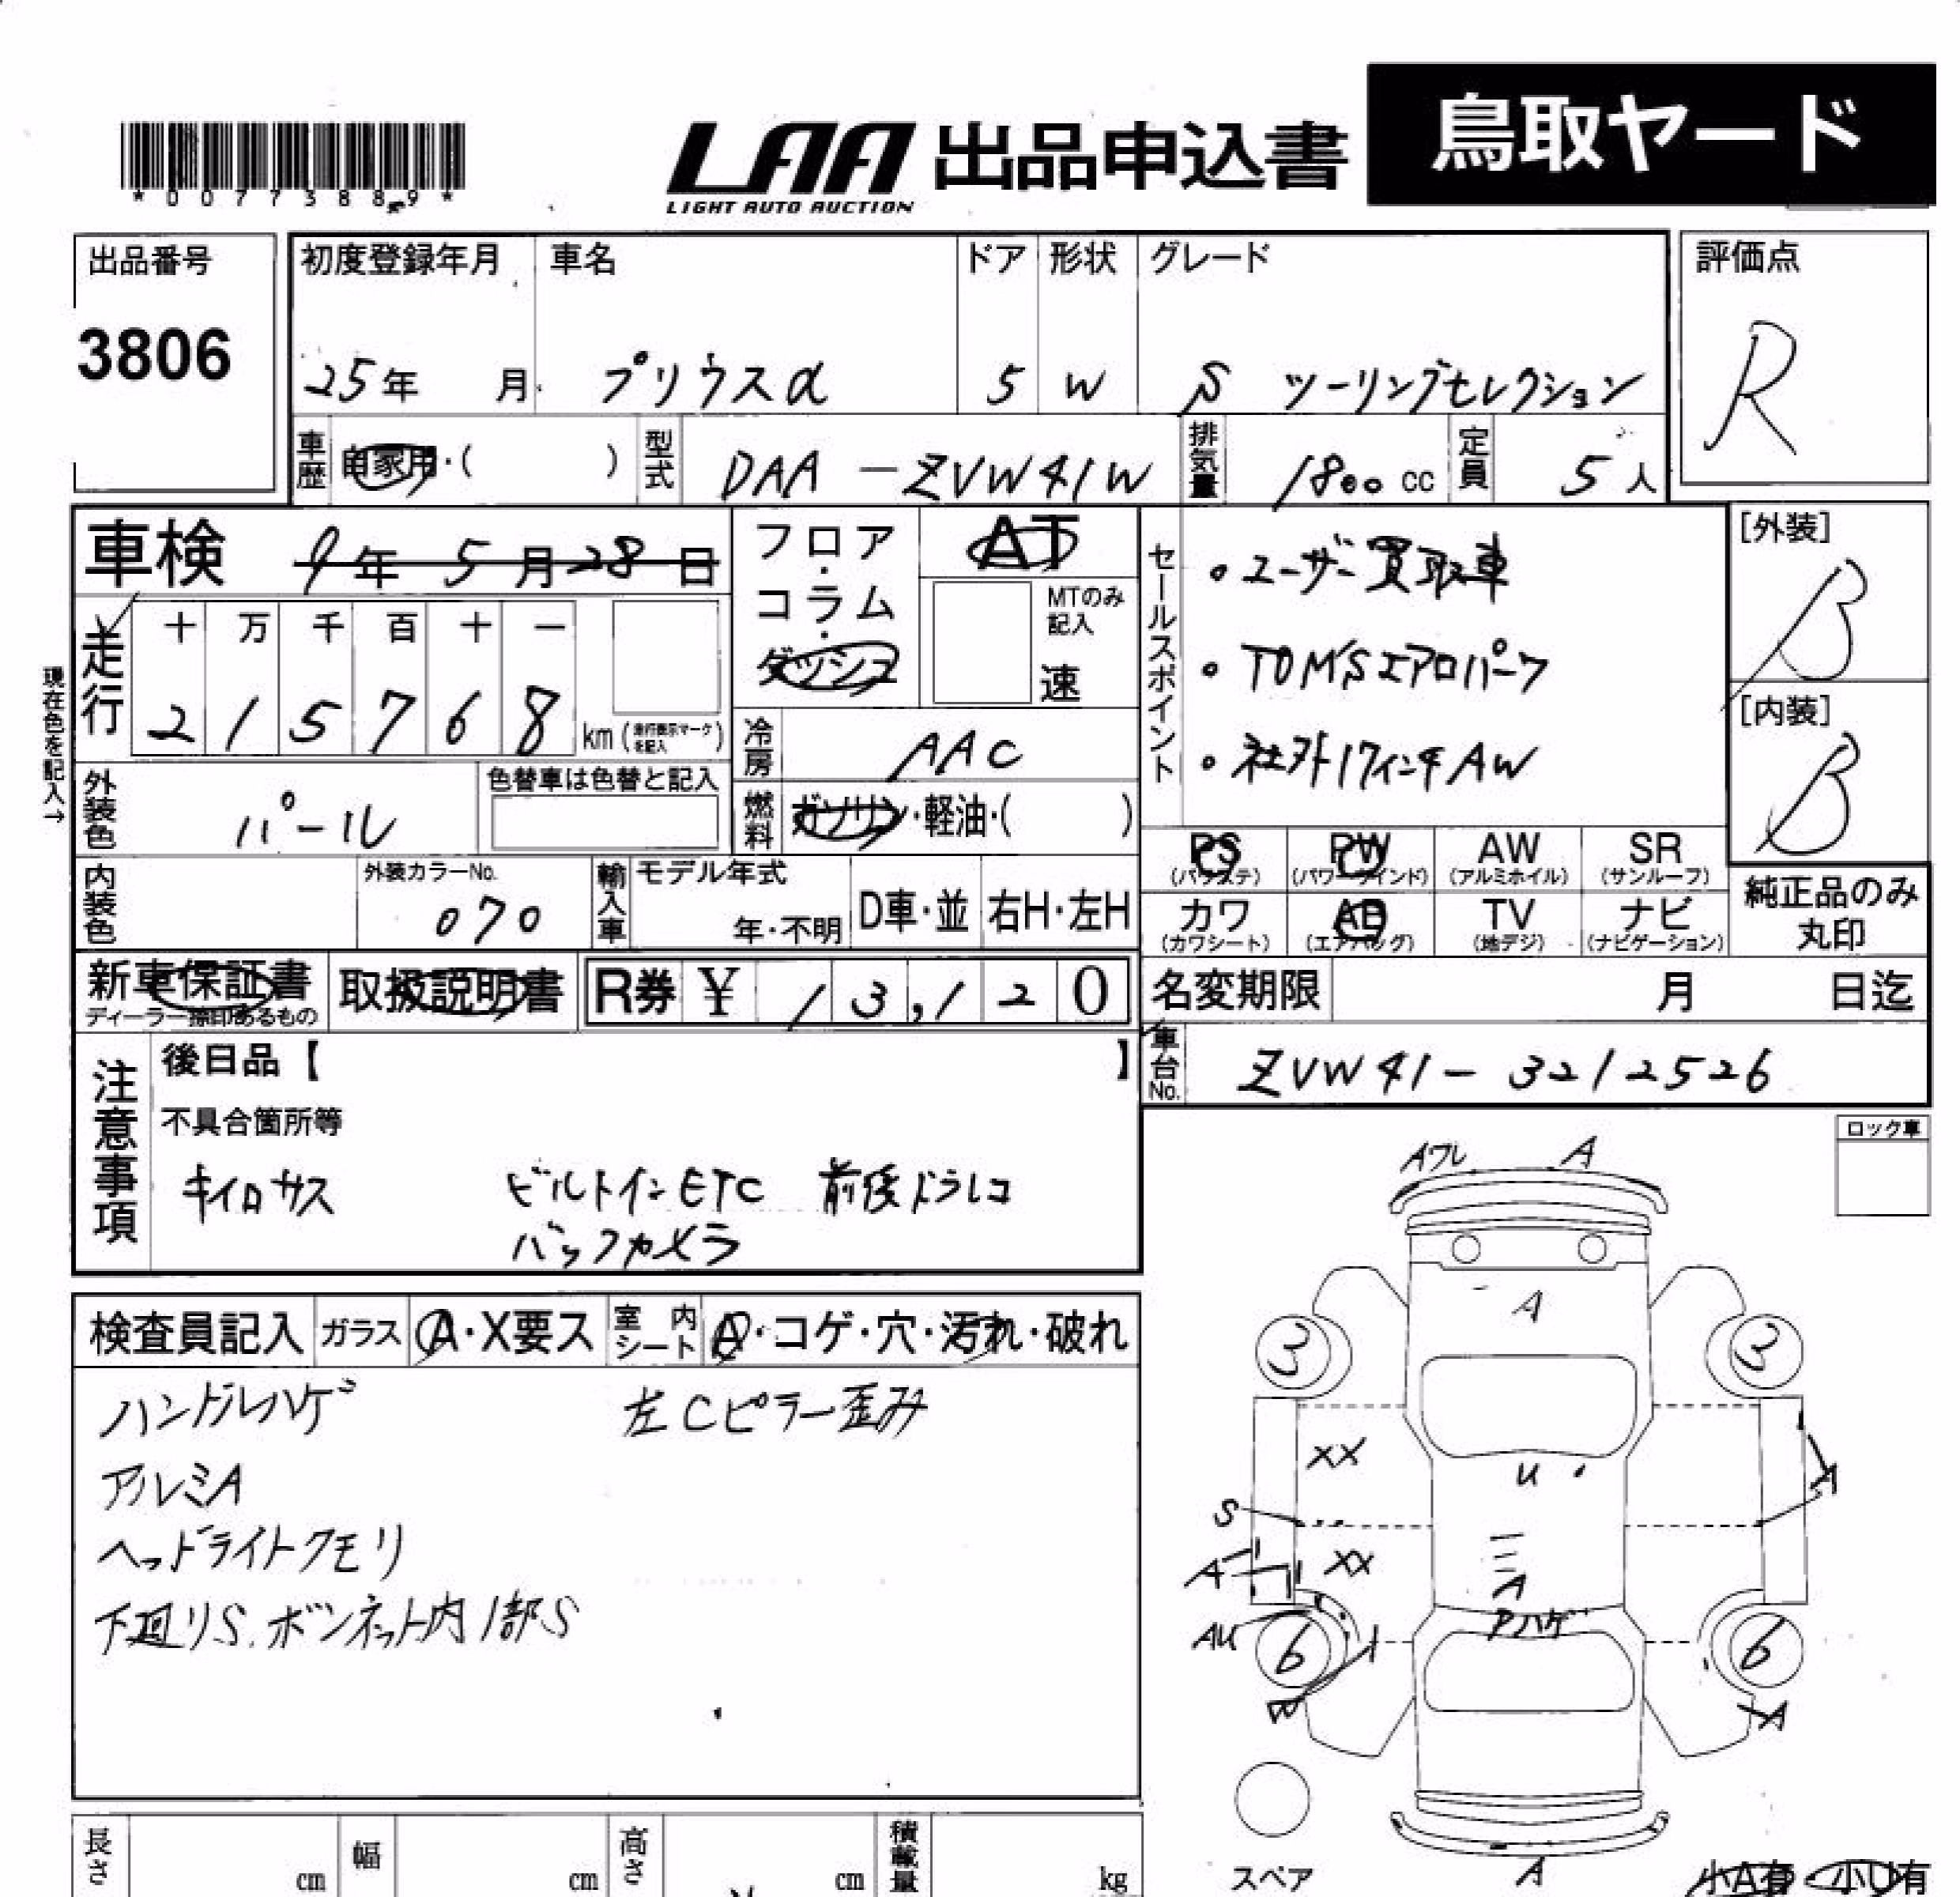 *00773889*
LAA 出品申込書 鳥取ヤード
LIGHT AUTO AUCTION
出品番号
3806
初度登録年月 車名 ドア 形状 グレード
25年 月 プリウスα 5 W S ツーリングセレクション
評価点
R
車歴 自家用・( ) 型式 DAA-ZVW41W 排気量 1800 cc 定員 5人
車検 9年 5月 28日
フロア・コラム・ダッシュ
AT
MTのみ記入
速
セールスポイント
・ユーザー買取車
・TOM'Sエアロパーツ
・社外17インチAW
[外装]
B
[内装]
B
現在色を記入→
走行 十 万 千 百 十 一
2 1 5 7 6 8 km (走行表示マークを記入)
冷房 AAC
外装色 パール
色替車は色替と記入
燃料 ガソリン・軽油・( )
内装色
外装カラーNo.
070
輸入車 モデル年式
年・不明 D車・並 右H・左H
PS PW AW SR
(パワステ) (パワーウインド) (アルミホイル) (サンルーフ)
カワ AB TV ナビ
(カワシート) (エアバッグ) (地デジ) (ナビゲーション)
純正品のみ
丸印
新車保証書 取扱説明書 R券 ¥ 13,120
ディーラー捺印あるもの
名変期限 月 日迄
車台No. ZVW41-3212526
注意事項
後日品【 】
不具合箇所等
キイロサス ビルトインETC 前後ドラレコ
バックカメラ
ロック車
検査員記入 ガラス A・X要ス 室内シート A・コゲ・穴・汚れ・破れ
ハンドルハゲ 左Cピラー歪み
アルミA
ヘッドライトクモリ
下廻りS.ボンネット内1部S
Aワレ A
A
3 3
XX
U
S
A
A
XX
A
Pハゲ
AU
6 6
A
A
スペア
小A有 小U有
長さ cm 幅 cm 高さ cm 積載量 kg